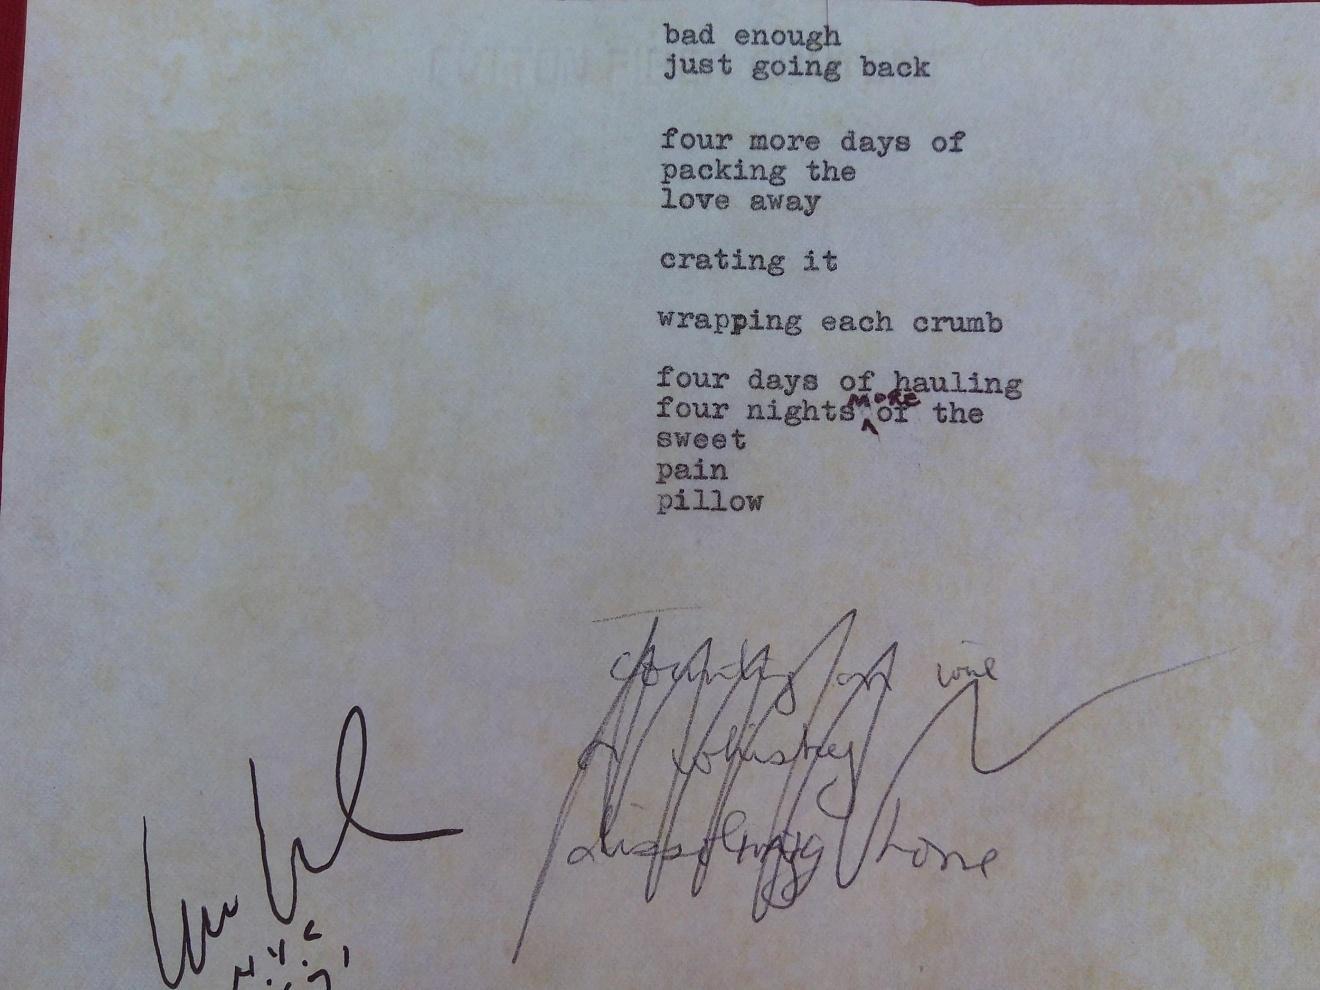 bad enough
just going back
four more days of
packing the
love away
crating it
wrapping each crumb
four days of hauling
four nights MORE of the
sweet
pain
pillow
wine
or whiskey
dissolving
N.Y.C